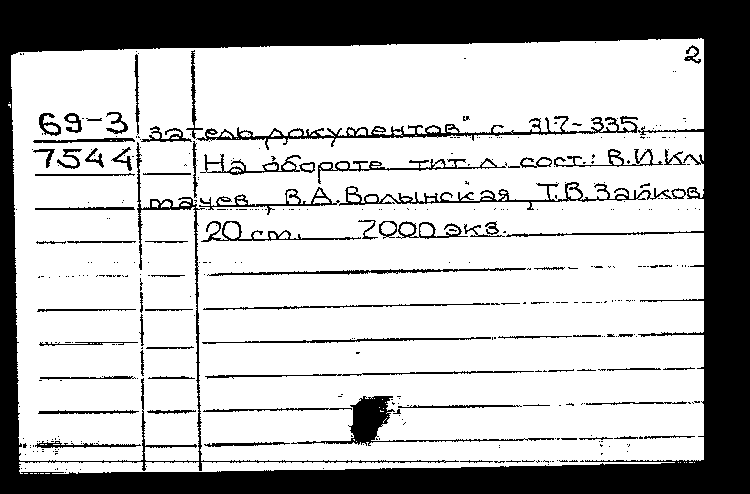 2
69-3 затель документов", с. 317-335.
7544 На обороте тит. л. сост.: В.И.Кли
мачев, В.А.Волынская, Т.В.Зайков
20 см. 7000 экз.